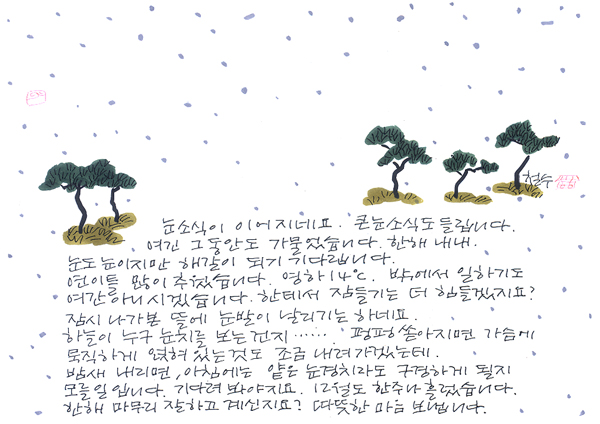 현수
눈소식이 이어지네요. 큰눈소식도 들립니다.
여긴 그동안도 가물었습니다. 한해 내내.
눈도 눈이지만 해갈이 되기 기다립니다.
연이틀 많이 추웠습니다. 영하 14℃. 밖에서 일하기도
여간 아니시겠습니다. 한데서 잠들기는 더 힘들겠지요?
잠시 나가본 뜰에 눈발이 날리기는 하네요.
하늘이 누구 눈치를 보는건지…… 펑펑 쏟아지면 가슴에
묵직하게 얹혀 있는것도 조금 내려가겠는데.
밤새 내리면, 아침에는 얕은 눈경치라도 구경하게 될지
모를 일입니다. 기다려 봐야지요. 12월도 한주나 흘렀습니다.
한해 마무리 잘하고 계신지요? 따뜻한 마음 보냅니다.